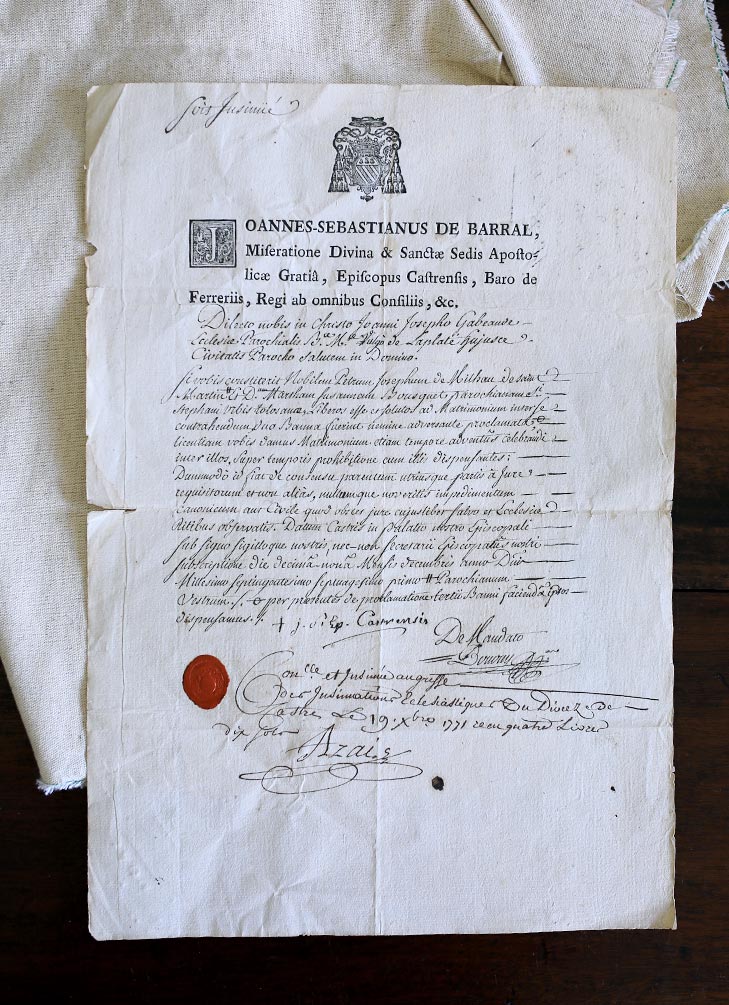 soit Insinué
JOANNES-SEBASTIANUS DE BARRAL,
Miseratione Divina & Sanctæ Sedis Aposto-
licæ Gratiâ, Episcopus Castrensis, Baro de
Ferreriis, Regi ab omnibus Consiliis, &c.
Dilecto nobis in Christo Joanni Josepho Gabeaude
Ecclesiæ Parochialis B.æ M.æ Vulgo de Laplaté hujusce
Civitatis Parocho Salutem in Domino.
Si vobis constiterit Nobilem Petrum Josephum de Milhau de saint
Martin & D.am Martham Susannam Bousquet parochianam S.ti
Stephani Urbis tolosanæ, Liberos esse et solutos ad Matrimonium inter se
contrahendum Duo Banna fuerint nemine adversante proclamata
licentiam vobis damus Matrimonium etiam tempore adventus celebrandi
inter illos, super temporis prohibitione cum illis dispensantes;
Dummodo id fiat de consensu parentum utriusque partis à Jure
requisitorum et non alias, nullumque noveritis impedimentum
canonicum aut Civile quod obstet jure cujuslibet salvo et Ecclesiæ
Ritibus observatis. Datum Castris in palatio nostro Episcopali
sub signo sigilloque nostris, nec-non secretarii Episcopatûs nostri
subscriptione die decima-nonâ Mensis decembris anno Dni
Millesimo septingentesimo septuagesimo primo # Parochianum
Vestrum /. & per præsentes de proclamatione tertii Banni faciendâ ipsos
dispensamus /.
+ J. S. Ep. Castrensis
De Mandato
Con.lle et Insinué au greffe
des Insinuations Eclesiastiques Du Dioceze de
Castres Le 19. Xbre 1771 reçu quatre Livres
dix sols
Azais